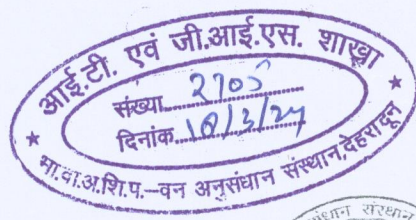 आई.टी. एवं जी.आई.एस. शाखा
संख्या 2705
दिनांक
भा.वा.अ.शि.प.–वन अनुसंधान संस्थान, देहरादून